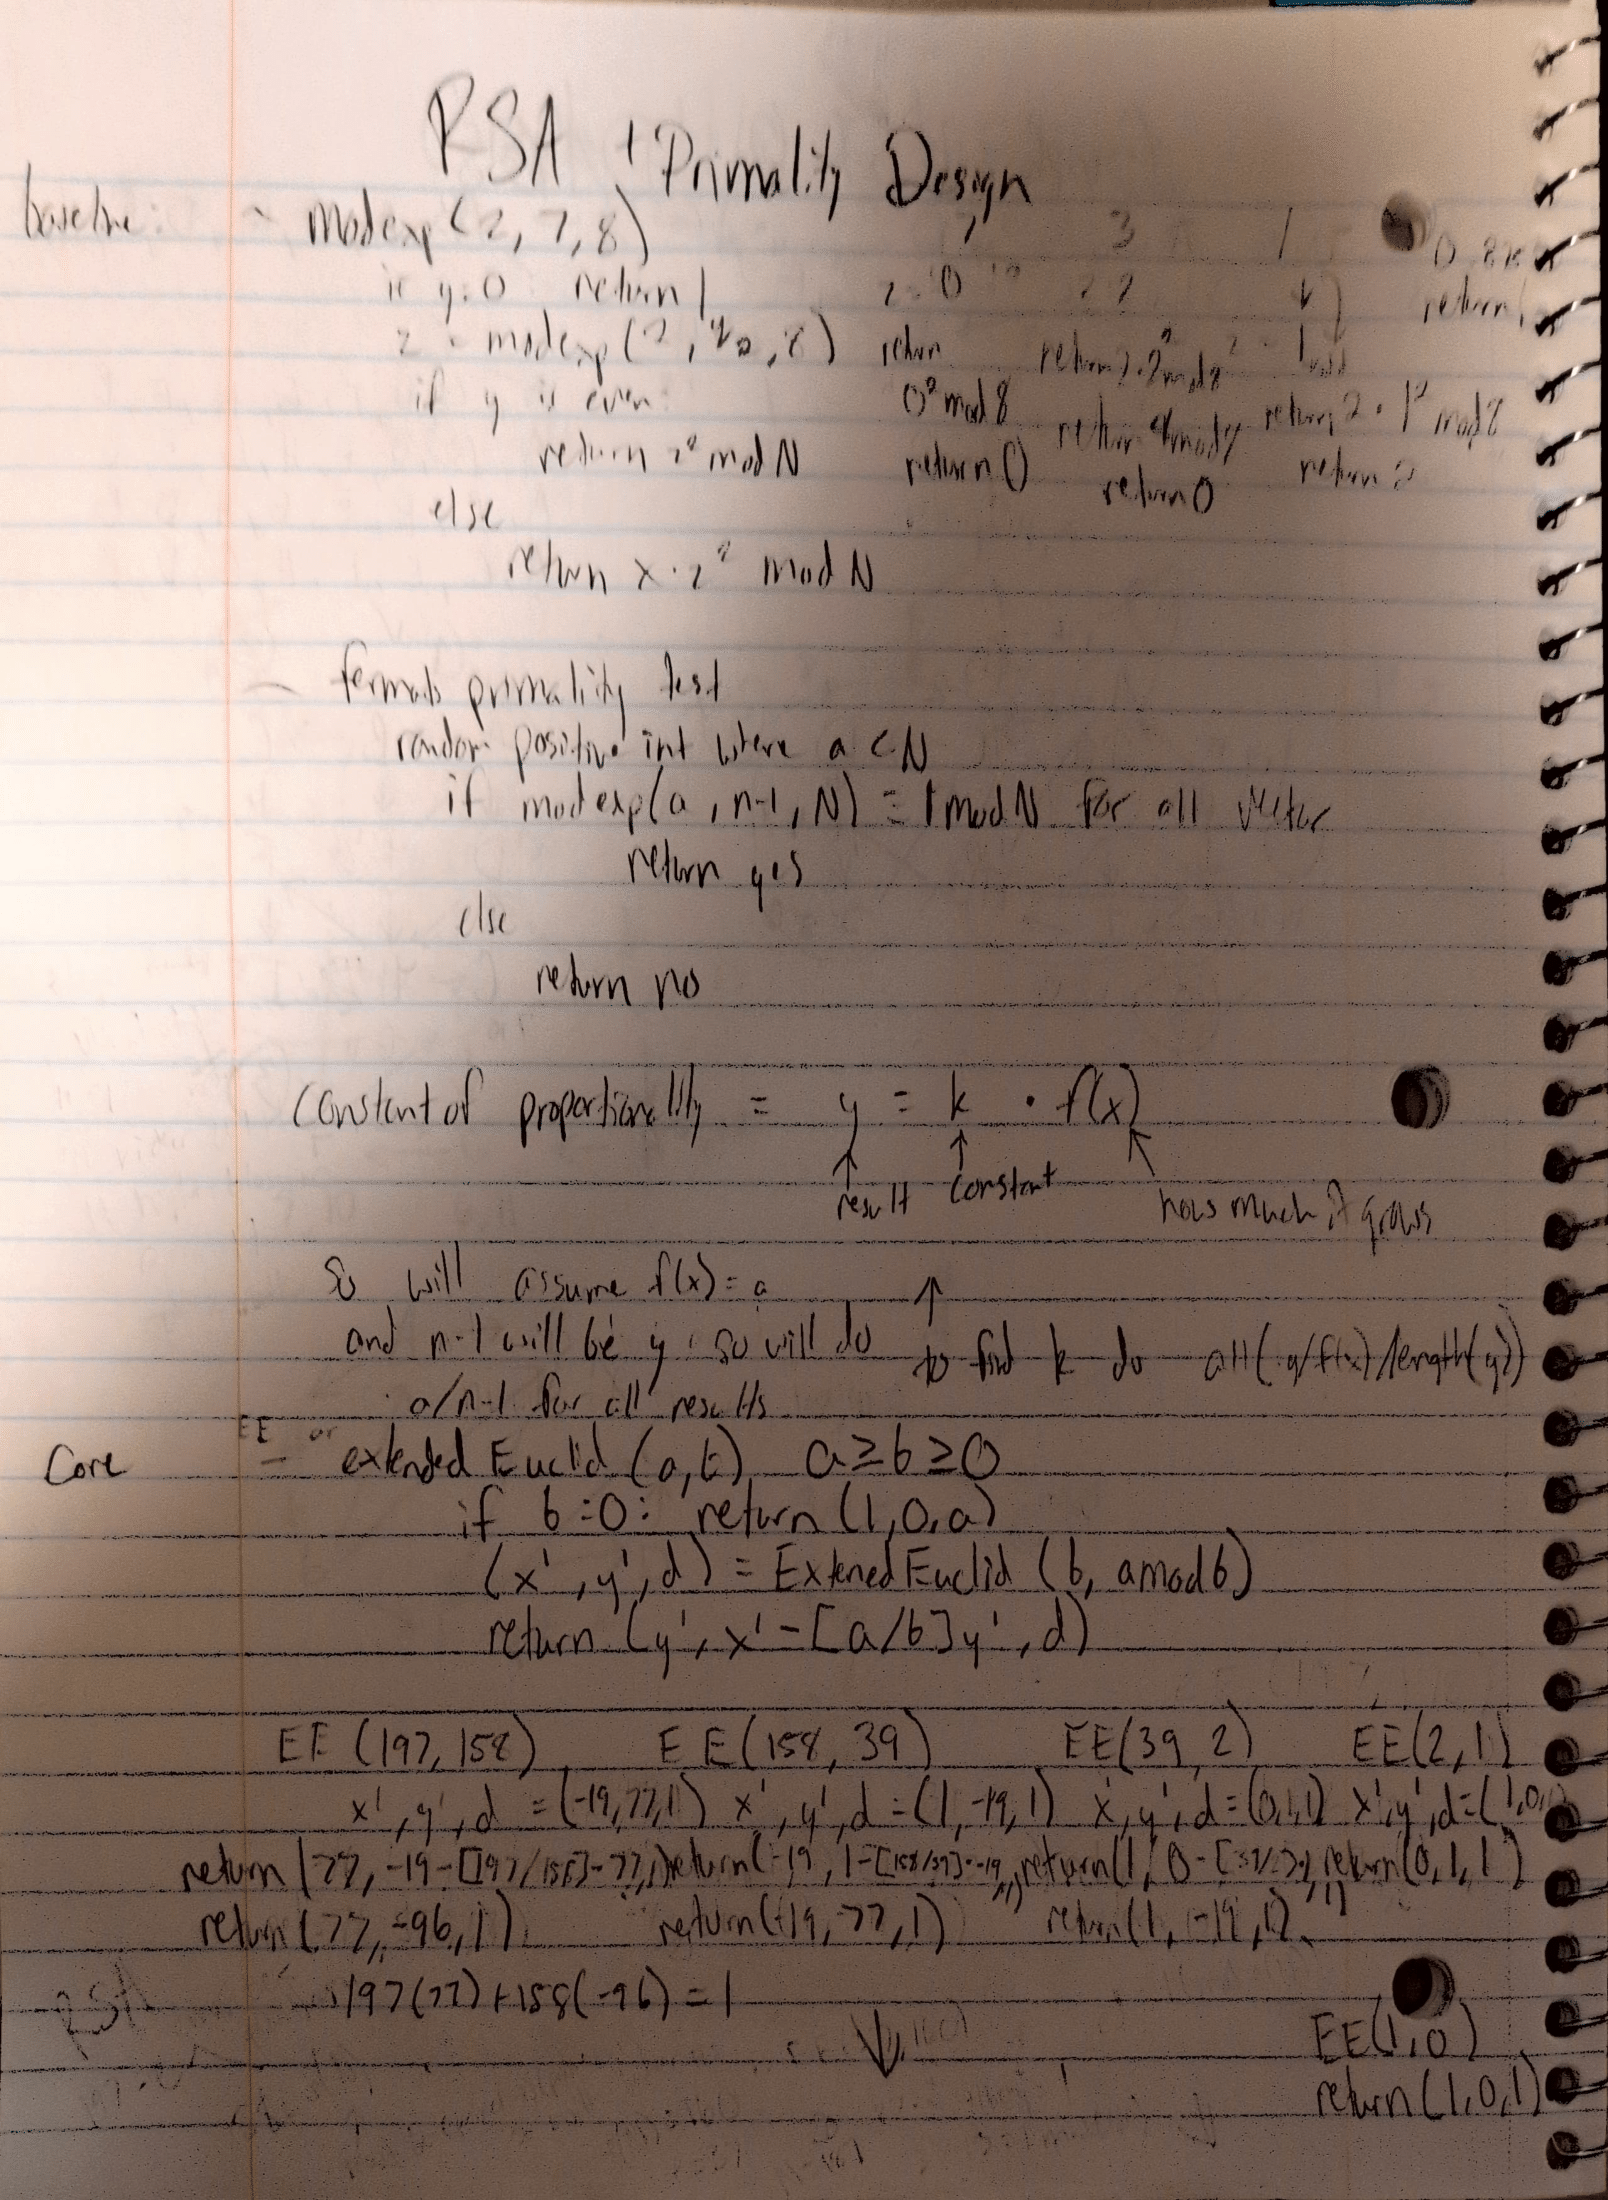 RSA / Primality Design
baseline: - modexp(2, 7, 8) 7 3 1 0
if y=0 return 1 z=0 z=2 return 1
z = modexp(2, y/2, 8) return return 2·2² mod 8
if y is even 0² mod 8 return 2·1² mod 8
return z² mod N return 0 return 0 return 2
else
return x·z² mod N
- fermats primality test
random positive int where a < N
if modexp(a, n-1, N) = 1 mod N for all
return yes
else
return no
Constant of proportionality = y = k · f(x)
result constant how much it grows
So will assume f(x) = a ↑
and n-1 will be y so will do to find k do all(y/f(x)/length(y))
a/n-1 for all results
EE or
Core - extended Euclid (a,b) a≥b≥0
if b=0: return (1,0,a)
(x', y', d) = Extened Euclid (b, a mod b)
return (y', x' - [a/b]y', d)
EE (197, 158) EE(158, 39) EE(39, 2) EE(2, 1)
x', y', d = (-19,77,1) x', y', d = (1,-19,1) x', y', d = (0,1,1) x', y', d = (1,0,
return (77, -19-[197/158]·77,1) return(-19, 1-[158/39]·-19,1) return(1, 0-[39/2]·1,1) return(0,1,1)
return (77, -96, 1) return(-19, 77, 1) return(1, -19, 1)
RSA 197(77)+158(-96) = 1
EE(1,0)
return (1,0,1)